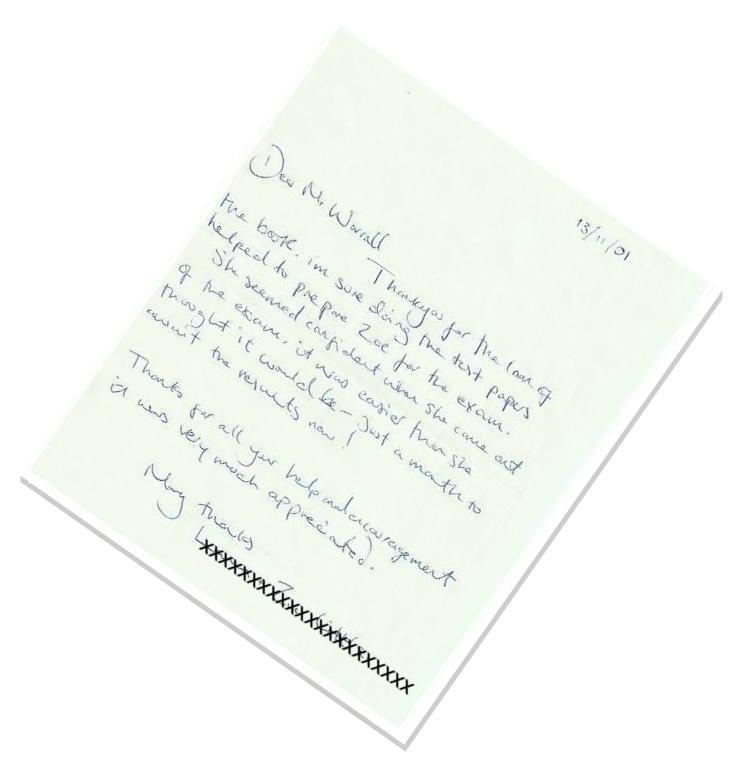 13/11/01
Dear Mr Worrall
Thankyou for the loan of
the book. im sure doing the test papers
helped to prepare Zoe for the exam.
She seemed confident when she came out
of the exam, it was easier than she
thought it would be – just a month to
await the results now!
Thanks for all your help and encouragement
it was very much appreciated.
Many thanks
XXXXXXXXXXXXXXXXXXXXXX